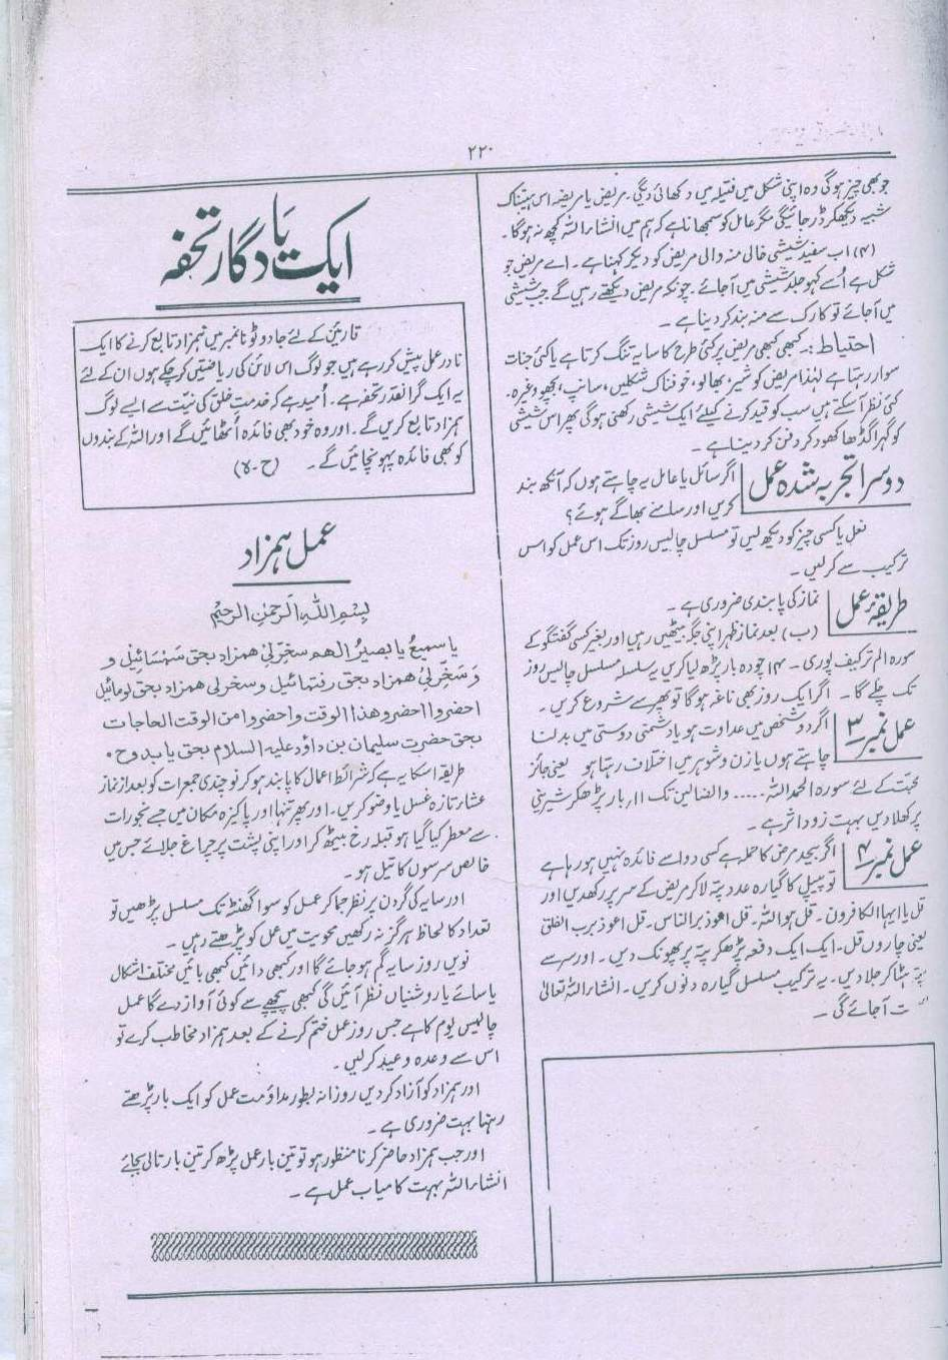 ۲۲۰
جو بھی چیز ہوگی وہ اپنی شکل میں فتیلہ میں دکھائی دیگی۔ مریض یا مریضہ اس ہیبتناک
شبیہ دیکھکر ڈر جائیگی مگر عامل کو سمجھانا ہے کہ ہم ہیں انشاءاللہ کچھ نہ ہوگا۔
(۴) اب سفید شیشی خالی منہ والی مریض کو دیکر کہنا ہے۔ اے مریض جو
شکل ہے اُسے کہو جلد شیشی میں آجائے۔ چونکہ مریض دیکھتے رہیں گے جب شیشی
میں آجائے تو کارک سے منہ بند کر دینا ہے۔
احتیاط:۔ کبھی کبھی مریض پر کئی طرح کا سایہ تنگ کرتا ہے یا کئی جنات
سوار رہتا ہے لہٰذا مریض کو شیر، بھالو، خوفناک شکلیں، سانپ، بچھو وغیرہ۔
کئی نظر آسکتے ہیں سب کو قید کرنے کیلئے ایک شیشی رکھنی ہوگی پھر اس شیشی
کو گہرا گڈھا کھود کر دفن کر دینا ہے۔
دوسرا تجربہ شدہ عمل
اگر سائل یا عامل یہ چاہتے ہوں کہ آنکھ بند
کریں اور سامنے بھاگے ہوئے؟
نعل یا کسی چیز کو دیکھ لیں تو مسلسل چالیس روز تک اس عمل کو اس
ترکیب سے کرلیں۔
طریقۂ عمل
نماز کی پابندی ضروری ہے۔
(ب) بعد نماز ظہر اپنی جگہ بیٹھیں رہیں اور بغیر کسی گفتگو کے
سورہ الم ترکیف پوری۔ ۱۴ چودہ بار پڑھ لیا کریں یہ سلسلہ مسلسل چالیس روز
تک چلے گا۔ اگر ایک روز بھی ناغہ ہوگا تو پھر سے شروع کریں۔
عمل نمبر ۳
اگر دو شخص میں عداوت ہو یا دشمنی دوستی میں بدلنا
چاہتے ہوں یا زن و شوہر میں اختلاف رہتا ہو یعنی جائز
محبّت کے لئے سورہ الحمدللہ..... والضالین تک ۱۱ بار پڑھکر شیرینی
پر کھلا دیں بہت زود اثر ہے۔
عمل نمبر ۴
اگر بیحد مرض کا حملہ ہے کسی دوا سے فائدہ نہیں ہو رہا ہے
تو پیپل کا گیارہ عدد پتہ لاکر مریض کے سر پر رکھدیں اور
قل یا ایہا الکافرون۔ قل ہو اللہ۔ قل اعوذ برب الناس۔ قل اعوذ برب الفلق
یعنی چاروں قل۔ ایک ایک دفعہ پڑھکر پتہ پر پھونک دیں۔ اور سر سے
پتہ ہٹا کر جلا دیں۔ یہ ترکیب مسلسل گیارہ دنوں کریں۔ انشاءاللہ تعالیٰ
ت آجائے گی۔
ایک یادگار تحفہ
قارئین کے لئے جادو ٹونا نمبر میں ہمزاد تابع کرنے کا ایک
نادر عمل پیش کر رہے ہیں جو لوگ اس لائن کی ریاضتیں کر چکے ہوں ان کے لئے
یہ ایک گرانقدر تحفہ ہے۔ اُمید ہے کہ خدمتِ خلق کی نیت سے ایسے لوگ
ہمزاد تابع کریں گے۔ اور وہ خود بھی فائدہ اُٹھائیں گے اور اللہ کے بندوں
کو بھی فائدہ پہونچائیں گے۔ (ح۔ہ)
عمل ہمزاد
بسم اللہ الرحمن الرحیم
یا سمیعُ یا بصیرُ الھم سخرلی ھمزاد بحق سَھْسَائیل و
وَسَخِّرلی ھمزاد بحق رفتھائیل و سخرلی ھمزاد بحق لومائیل
احضروا احضرو ھذا الوقت واحضروا من الوقت الحاجات
بحق حضرت سلیمان بن داؤد علیہ السلام بحق یا بدوح۔
طریقہ اسکا یہ ہے کہ شرائط اعمال کا پابند ہو کر نوچندی جمعرات کو بعد از نماز
عشار تازہ غسل یا وضو کریں۔ اور پھر تنہا اور پاکیزہ مکان میں جسے بخورات
سے معطر کیا گیا ہو قبلہ رخ بیٹھ کر اور اپنی پشت پر چراغ جلائے جس میں
خالص سرسوں کا تیل ہو۔
اور سایہ کی گردن پر نظر جما کر عمل کو سوا گھنٹہ تک مسلسل پڑھیں تو
تعداد کا لحاظ ہرگز نہ رکھیں محویت میں عمل کو پڑھتے رہیں۔
نویں روز سایہ گم ہو جائے گا اور کبھی دائیں کبھی بائیں مختلف اشکال
یا سائے یا روشنیاں نظر آئیں گی کبھی پیچھے سے کوئی آواز دے گا عمل
چالیس یوم کا ہے جس روز عمل ختم کرنے کے بعد ہمزاد مخاطب کرے تو
اس سے وعدہ وعید کرلیں۔
اور ہمزاد کو آزاد کردیں روزانہ بطور مداومت عمل کو ایک بار پڑھتے
رہنا بہت ضروری ہے۔
اور جب ہمزاد حاضر کرنا منظور ہو تو تین بار عمل پڑھ کر تین بار تالی بجائے
انشاءاللہ بہت کامیاب عمل ہے۔